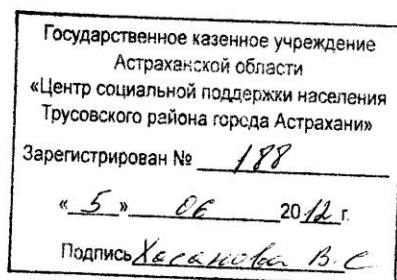 Государственное казенное учреждение
Астраханской области
«Центр социальной поддержки населения
Трусовского района города Астрахани»
Зарегистрирован № 188
« 5 » 06 2012 г.
Подпись Хасанова В.С